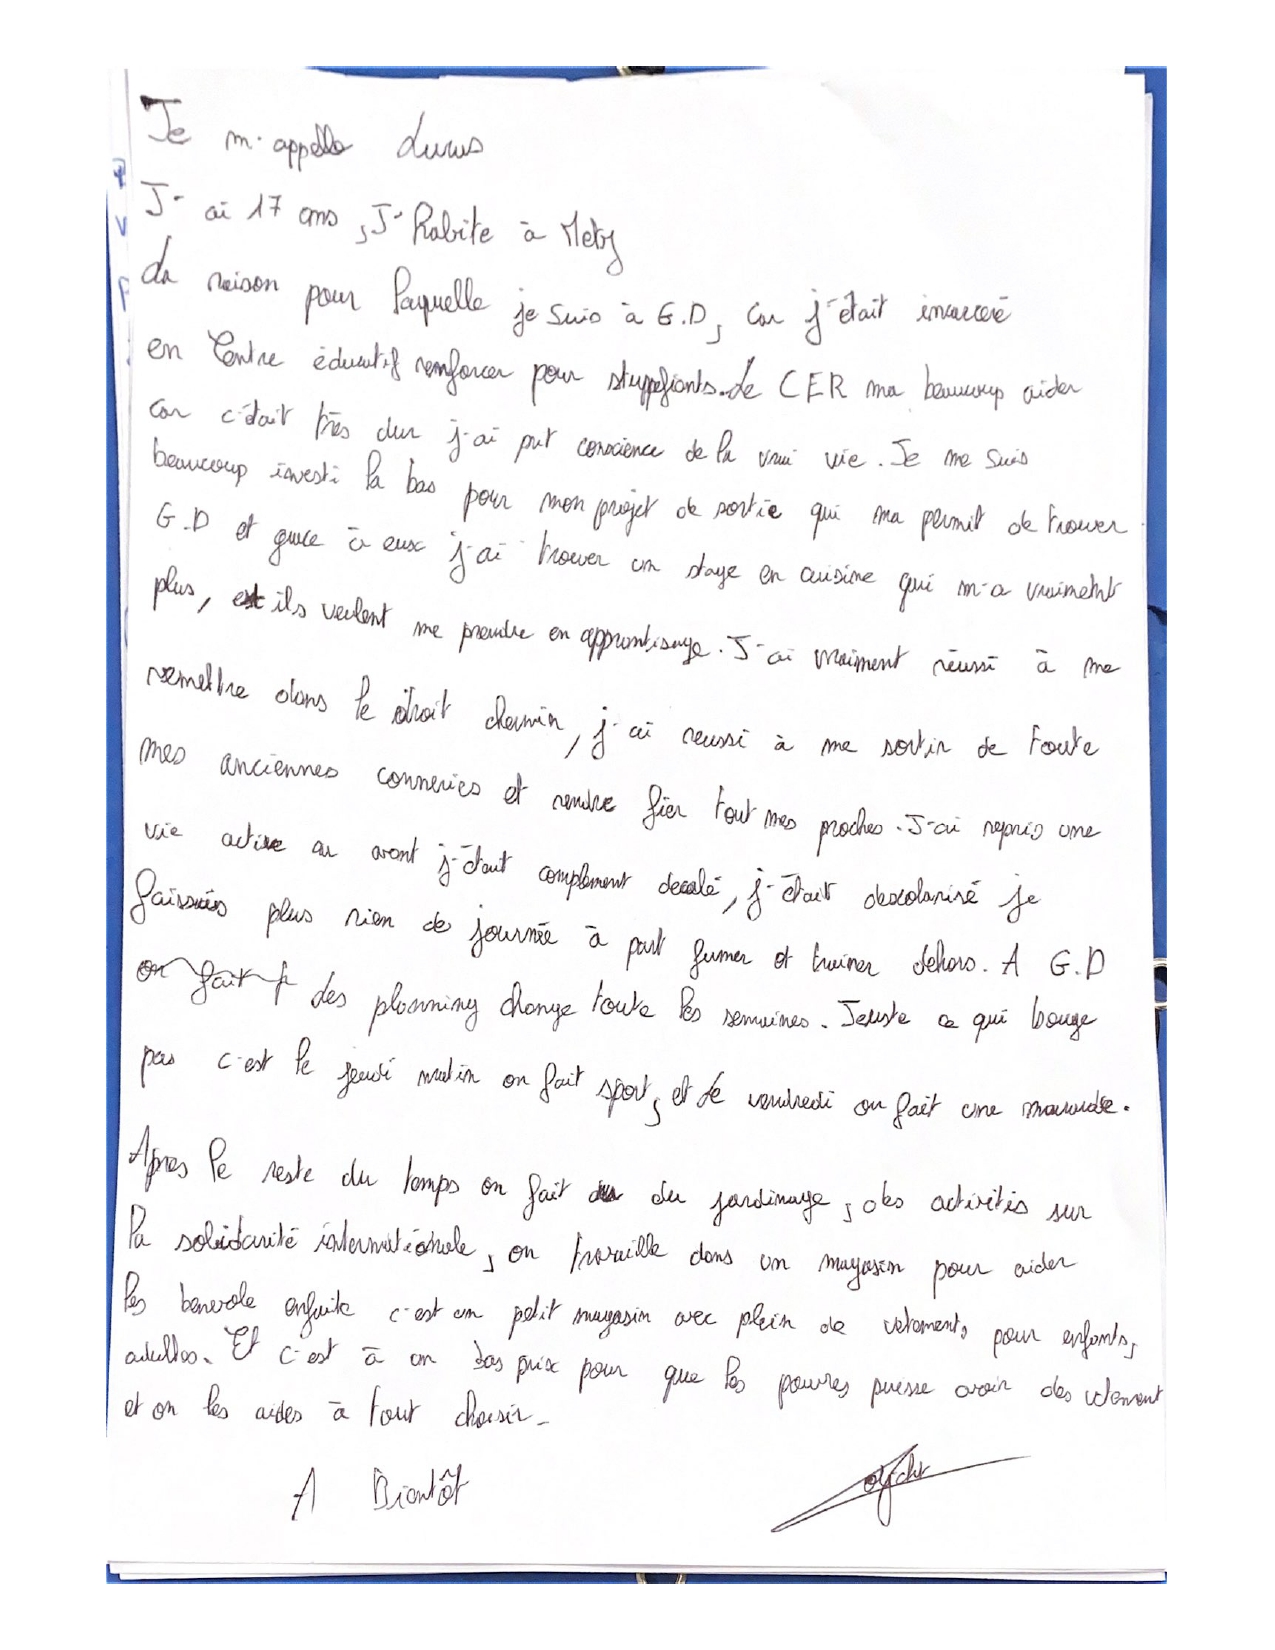 Je m'appelle
J'ai 17 ans, J'habite à Metz
La raison pour laquelle je suis à G.D, car j'était incarcéré
en Centre éducatif renforcer pour stuppefiants. Le CER ma beaucoup aider
car c'était très dur j'ai put conscience de la vrai vie. Je me suis
beaucoup investi la bas pour mon projet de sortie qui ma permit de trouver
G.D et grace à eux j'ai trouver un stage en cuisine qui m'a vraiment
plus, et ils veulent me prendre en apprentisage. J'ai vraiment réussi à me
remettre dans le droit chemin, j'ai reussi à me sortir de toute
mes anciennes conneries et rendre fier tout mes proches. J'ai repris une
vie active au avant j'était complement decalé, j'était descolarisé je
faissais plus rien de journée à part fumer et trainer dehors. A G.D
on fait des planning change toute les semaines. Jeuste ce qui bouge
pas c'est le jeudi matin on fait sport, et le vendredi on fait une maraude.
Apres le reste du temps on fait du jardinage, des activités sur
la solidarité internationale, on travaille dans un magasin pour aider
les benevole enfaite c'est un petit magasin avec plein de vetements pour enfants,
adultes. Et c'est à un bas prix pour que les pauvres puesse avoir des vetement
et on les aides à tout choisir.
A Bientôt